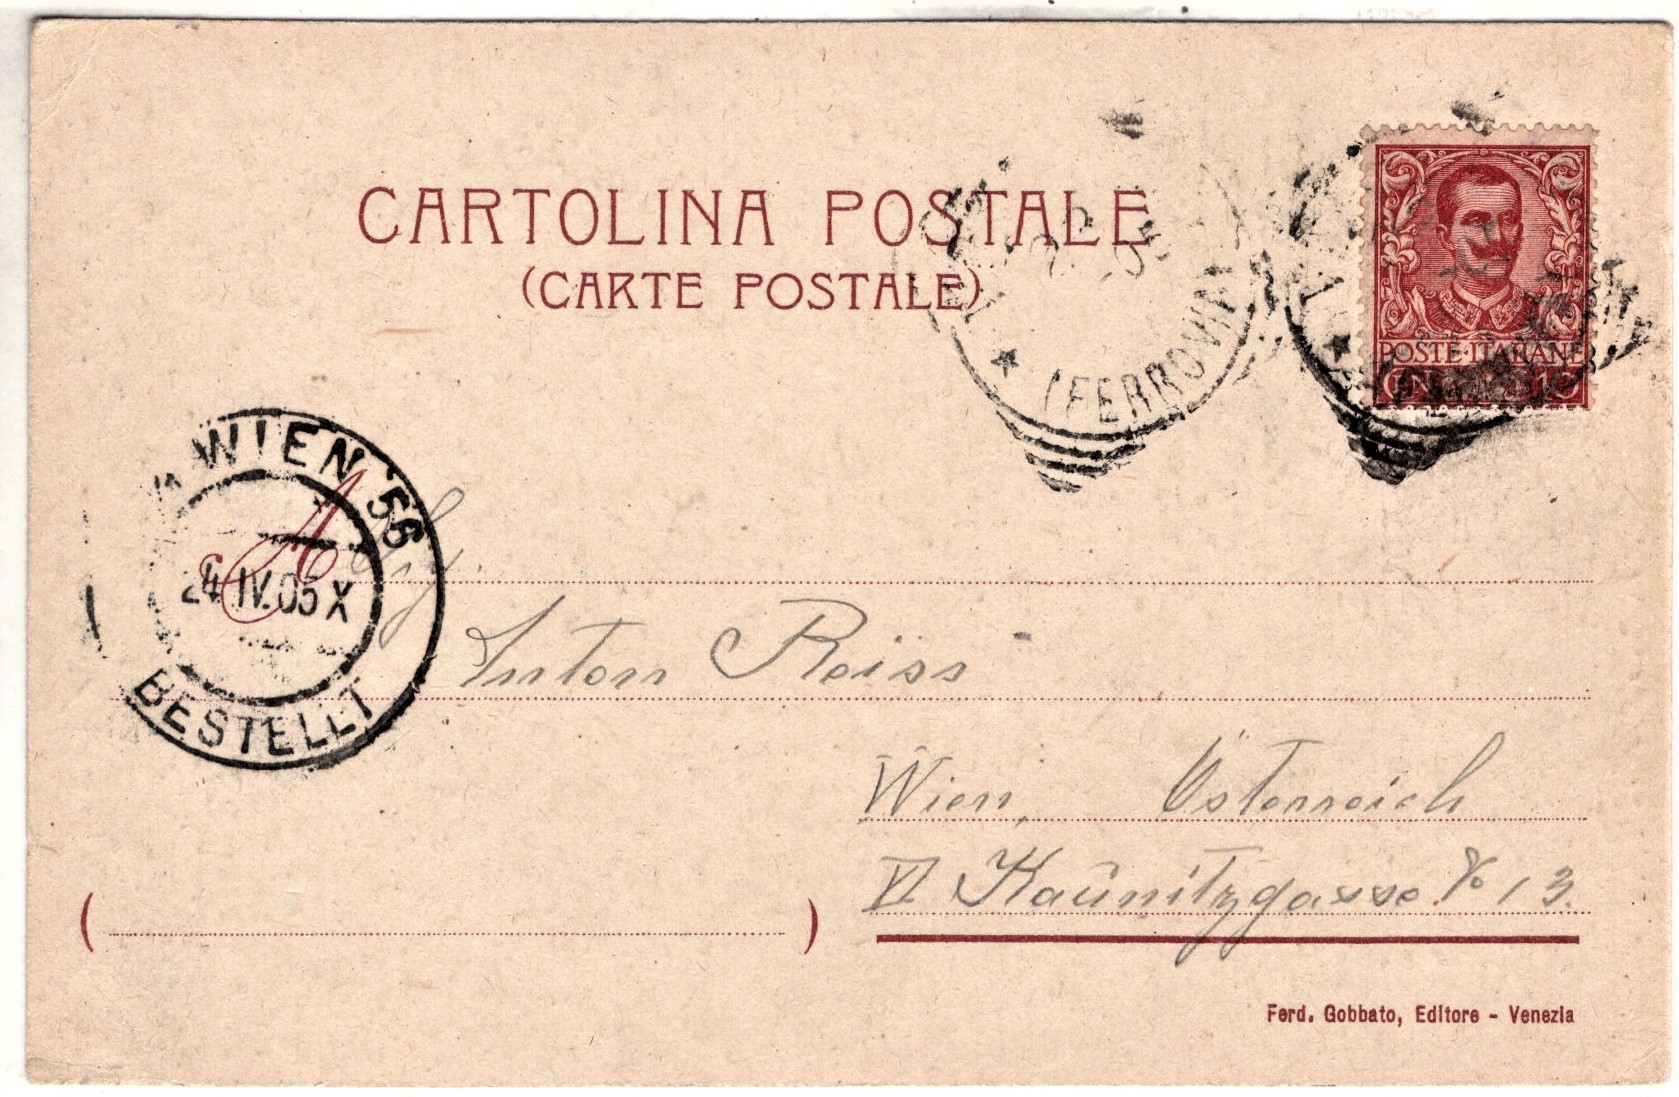 CARTOLINA POSTALE
(CARTE POSTALE)
(FERROVIA)
POSTE·ITALIANE
WIEN 56
24.IV.05 X
BESTELLT
A
Sig.
Anton Reiss
Wien, Österreich
VI Kaunitzgasse No 13.
( )
Ferd. Gobbato, Editore - Venezia